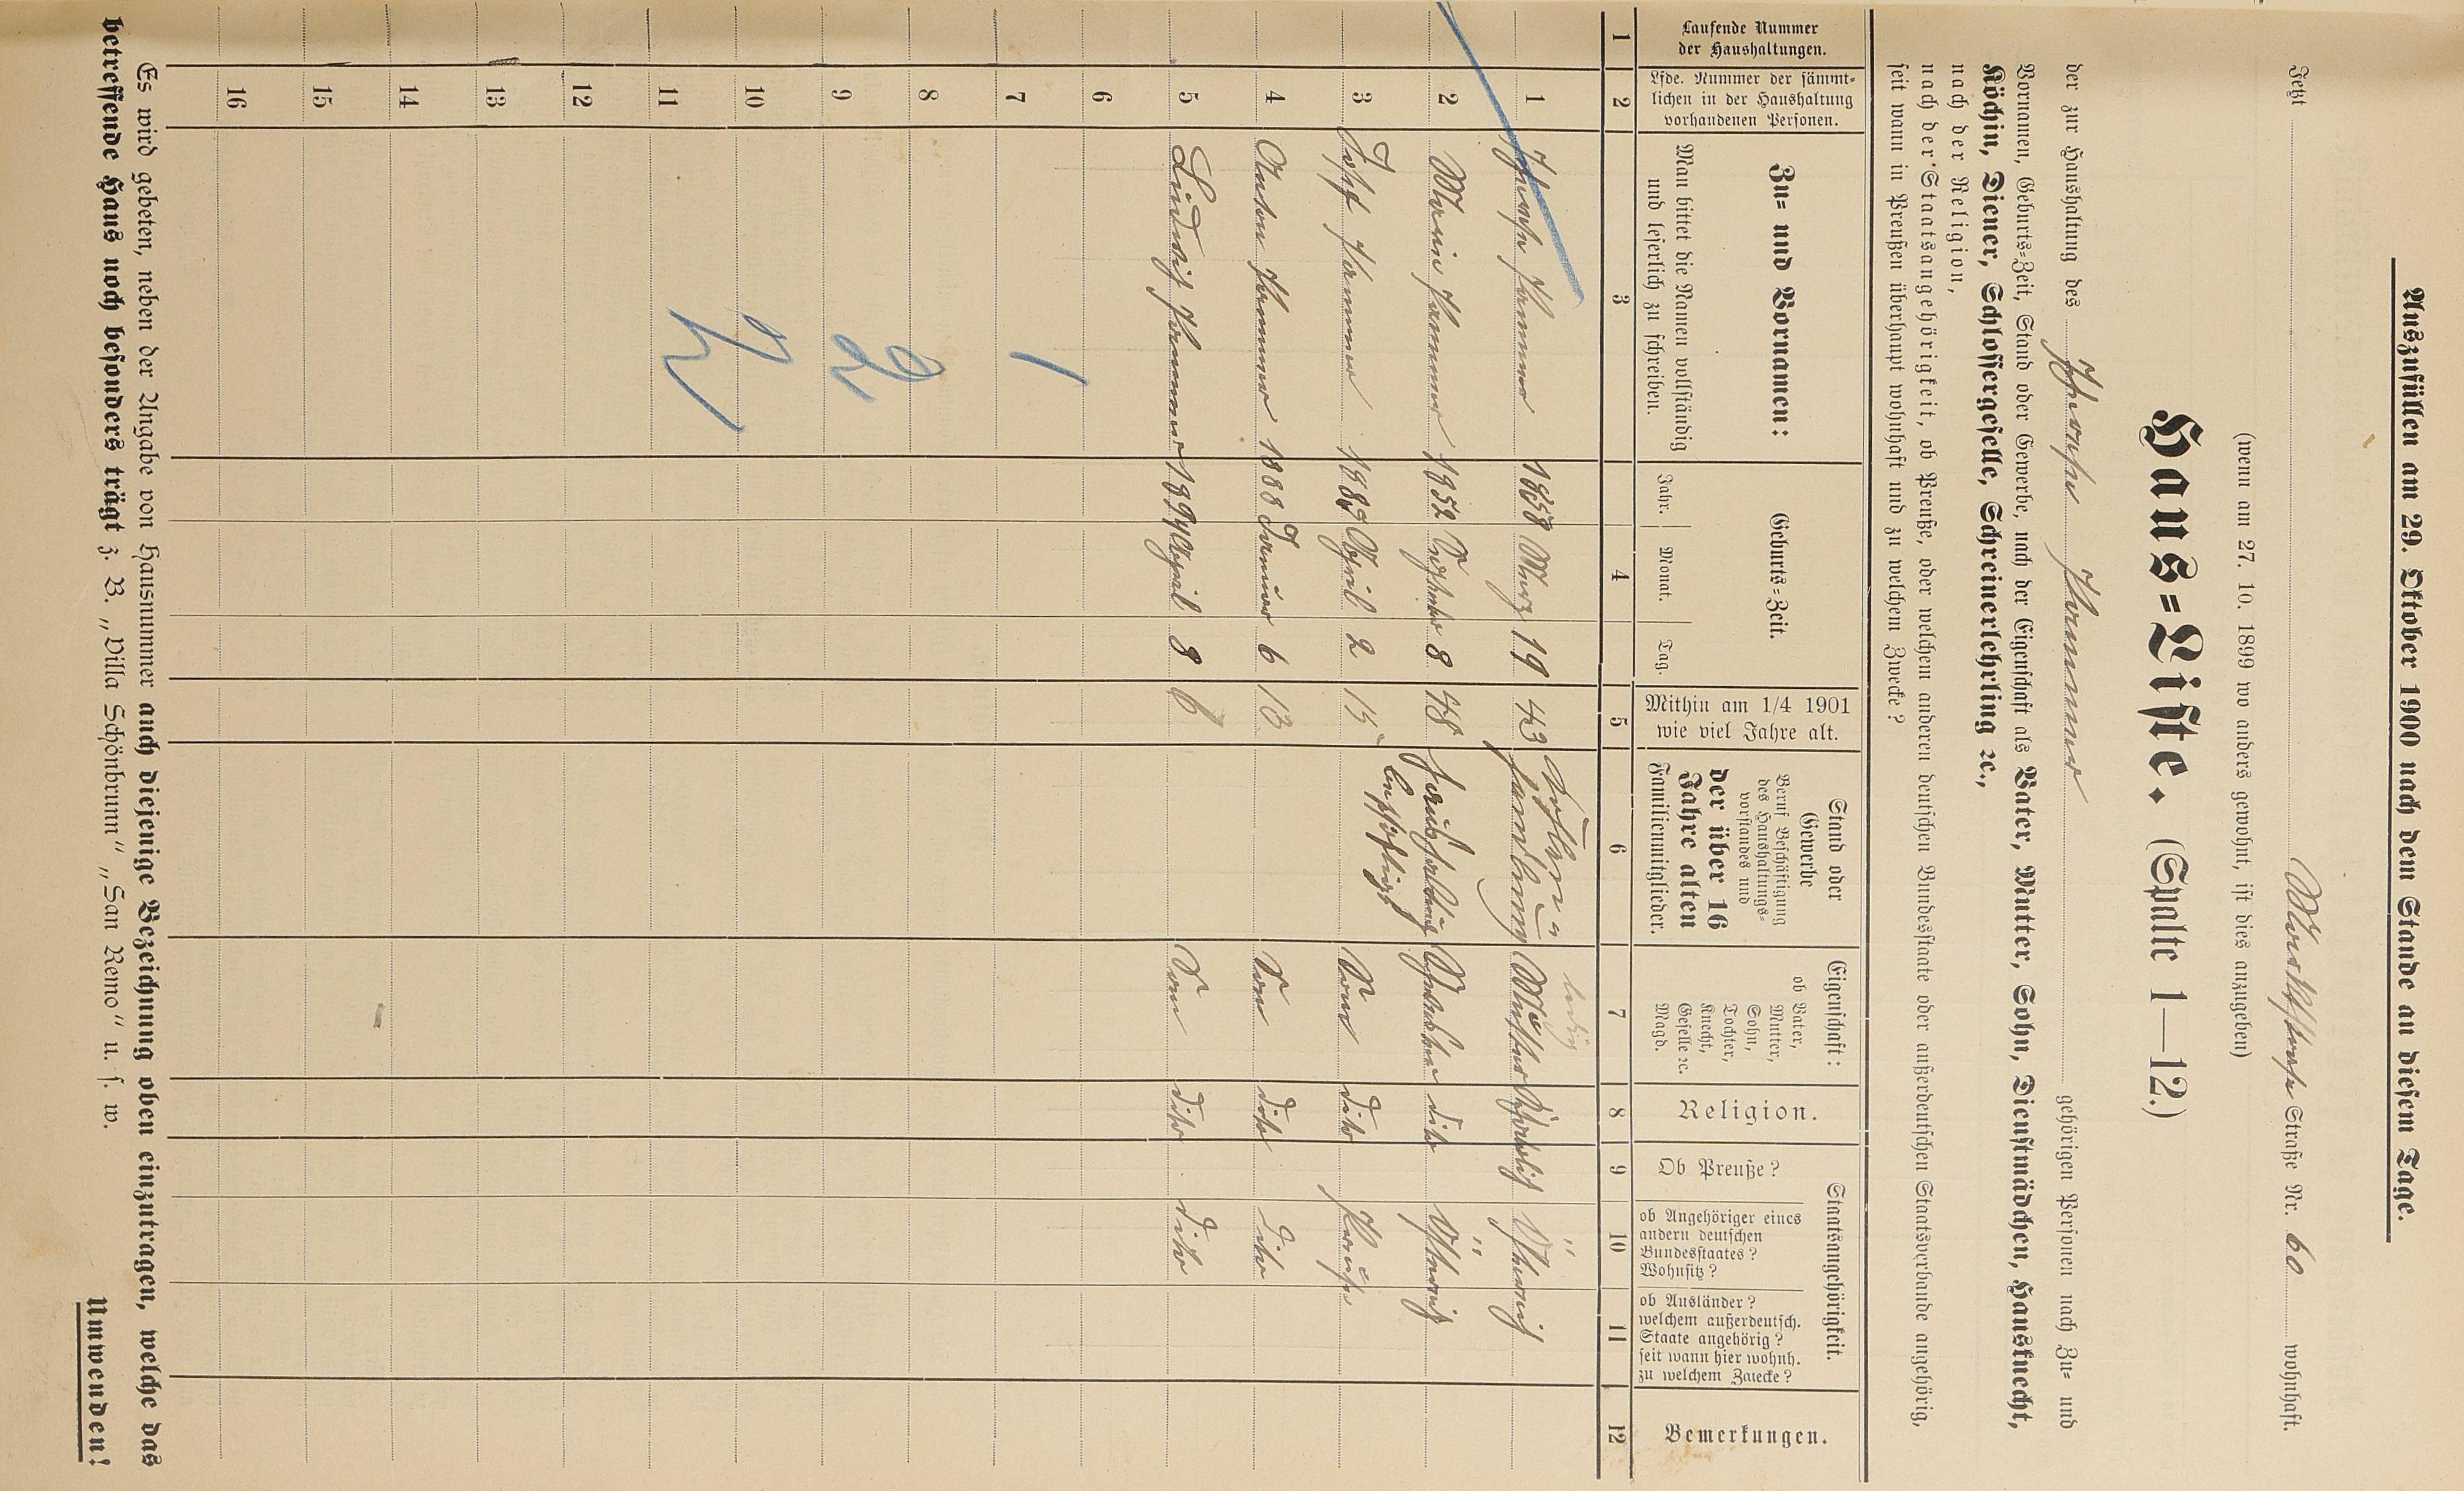 Auszufüllen am 29. Oktober 1900 nach dem Stande an diesem Tage.
Jetzt Straße Nr. 60 wohnhaft.
(wenn am 27. 10. 1899 wo anders gewohnt, ist dies anzugeben)
Haus=Liste. (Spalte 1—12.)
der zur Haushaltung des gehörigen Personen nach Zu= und
Vornamen, Geburts=Zeit, Stand oder Gewerbe, nach der Eigenschaft als Vater, Mutter, Sohn, Dienstmädchen, Hausknecht,
Köchin, Diener, Schlossergeselle, Schreinerlehrling ꝛc.,
nach der Religion,
nach der Staatsangehörigkeit, ob Preuße, oder welchem anderen deutschen Bundesstaate oder außerdeutschen Staatsverbande angehörig,
seit wann in Preußen überhaupt wohnhaft und zu welchem Zwecke?
Laufende Nummer
der Haushaltungen.
Lfde. Nummer der sämmt=
lichen in der Haushaltung
vorhandenen Personen.
Zu= und Vornamen:
Man bittet die Namen vollständig
und leserlich zu schreiben.
Geburts=Zeit.
Jahr. Monat. Tag.
Mithin am 1/4 1901
wie viel Jahre alt.
Stand oder
Gewerbe
Beruf Beschäftigung
des Haushaltungs=
vorstandes und
der über 16
Jahre alten
Familienmitglieder.
Eigenschaft:
ob Vater,
Mutter,
Sohn,
Tochter,
Knecht,
Geselle ꝛc.
Magd.
Religion.
Staatsangehörigkeit.
Ob Preuße?
ob Angehöriger eines
andern deutschen
Bundesstaates?
Wohnsitz?
ob Ausländer?
welchem außerdeutsch.
Staate angehörig?
seit wann hier wohnh.
zu welchem Zwecke?
Bemerkungen.
1 2 3 4 5 6 7 8 9 10 11 12
ledig "
1 1858 März 19 43
2 1852 8 48 dito "
3 Josef 1885 April 2 15 Sohn dito
4 Anton 1888 Januar 6 13 Sohn dito dito
5 Ludwig 1894 April 8 6 Sohn dito dito
6
7 1
8
9 2
10
11
12
13
14
15
16
Es wird gebeten, neben der Angabe von Hausnummer auch diejenige Bezeichnung oben einzutragen, welche das
betreffende Haus noch besonders trägt z. B. „Villa Schönbrunn“ „San Remo“ u. s. w.
Umwenden!